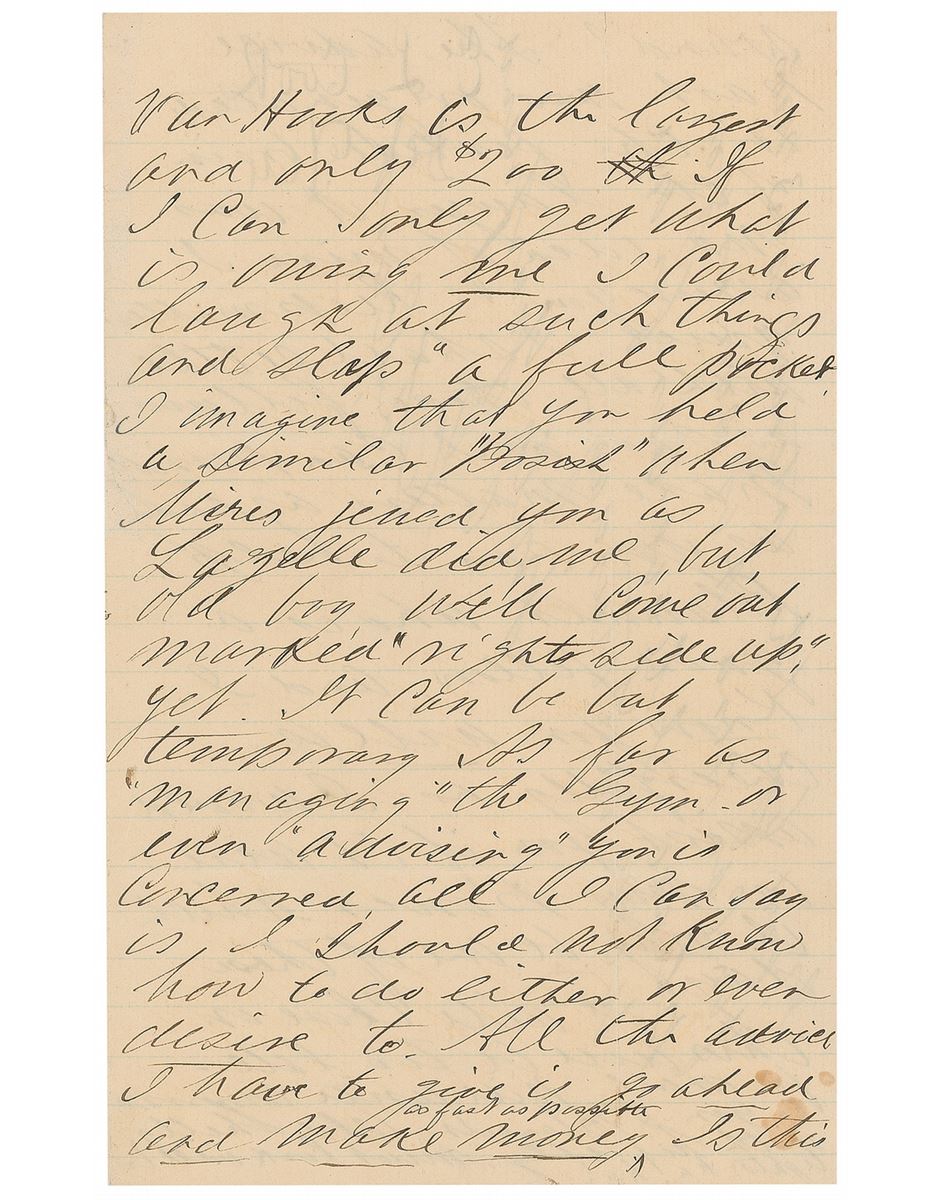 Van Hooks is the largest
and only $200 If
I can only get what
is owing me I could
laugh at such things
and slap "a full pocket
I imagine that you held
a similar "Posish" when
Mires jined you as
Lazelle did me, but,
old boy we'll come out
marked "right side up,"
yet. It can be but
temporary As far as
"managing" the Gym - or
even "advising" you is
concerned, all I can say
is, I should not know
how to do either or even
desire to. All the advice
I have to give is go ahead
as fast as possible
and make money Is this